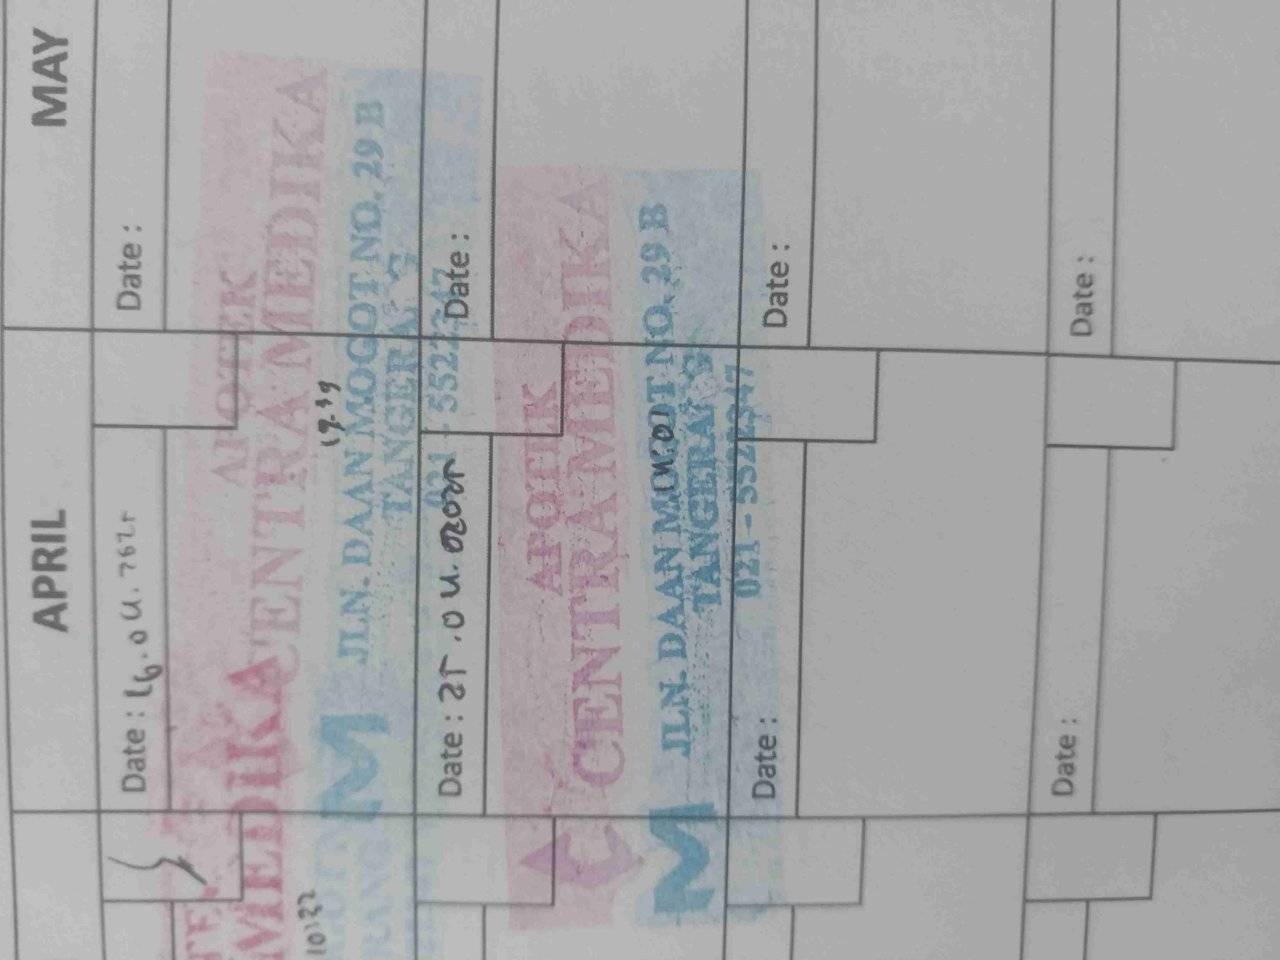 APRIL
MAY
Date : 16.04.2025
Date :
APOTEK
CENTRA MEDIKA
MEDIKA
19.39
10:22
M JLN. DAAN MOGOT NO. 29 B
TANGERANG
021 - 5522347
Date : 25.04.2025
Date :
APOTIK
CENTRA MEDIKA
M JLN. DAAN MOGOT NO. 29 B
TANGERANG
021 - 5522347
Date :
Date :
Date :
Date :